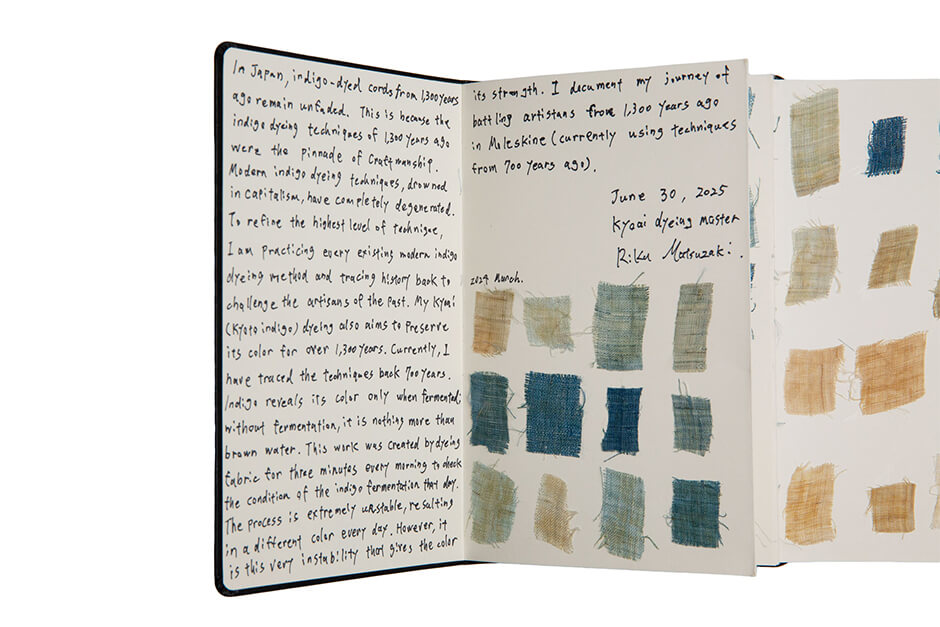 In Japan, indigo-dyed cords from 1,300 years
ago remain unfaded. This is because the
indigo dyeing techniques of 1,300 years ago
were the pinnacle of Craftmanship.
Modern indigo dyeing techniques, drowned
in capitalism, have completely degenerated.
To refine the highest level of technique,
I am practicing every existing modern indigo
dyeing method and tracing history back to
challenge the artisans of the past. My Kyoai
(Kyoto indigo) dyeing also aims to preserve
its color for over 1,300 years. Currently, I
have traced the techniques back 700 years.
Indigo reveals its color only when fermented;
without fermentation, it is nothing more than
brown water. This work was created by dyeing
fabric for three minutes every morning to check
the condition of the indigo fermentation that day.
The process is extremely unstable, resulting
in a different color every day. However, it
is this very instability that gives the color
its strength. I document my journey of
battling artistans from 1,300 years ago
in Moleskine (currently using techniques
from 700 years ago).
June 30, 2025
Kyoai dyeing master
Riku Matsuzaki.
2024 March.